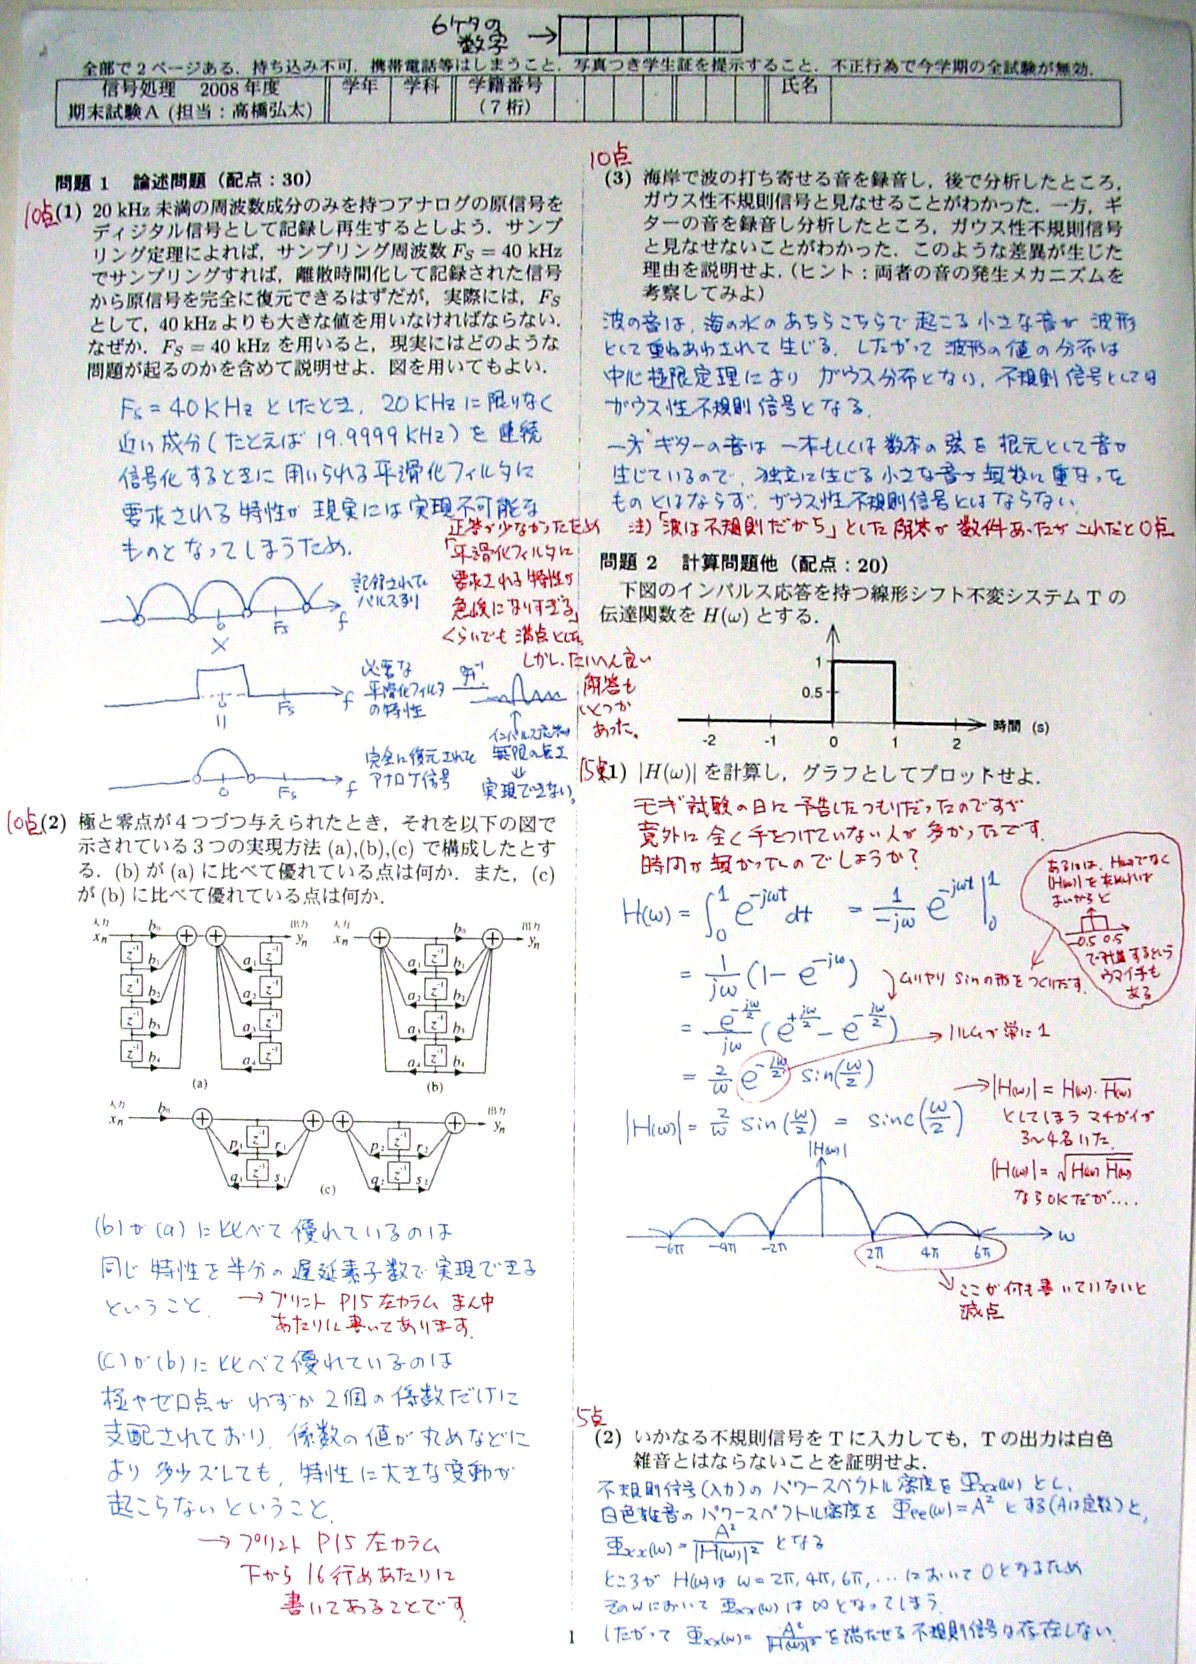 6ケタの
数字 →
全部で2ページある．持ち込み不可．携帯電話等はしまうこと．写真つき学生証を提示すること．不正行為で今学期の全試験が無効．
信号処理 2008年度
期末試験A (担当：高橋弘太)
学年
学科
学籍番号
(7桁)
氏名
問題1 論述問題 (配点：30)
10点
(1) 20 kHz 未満の周波数成分のみを持つアナログの原信号を
ディジタル信号として記録し再生するとしよう．サンプ
リング定理によれば，サンプリング周波数 FS = 40 kHz
でサンプリングすれば，離散時間化して記録された信号
から原信号を完全に復元できるはずだが，実際には，FS
として，40 kHz よりも大きな値を用いなければならない．
なぜか．FS = 40 kHz を用いると，現実にはどのような
問題が起るのかを含めて説明せよ．図を用いてもよい．
Fs = 40KHz としたとき，20KHzに限りなく
近い成分(たとえば 19.9999KHz)を連続
信号化するときに用いられる平滑化フィルタに
要求される特性が現実には実現不可能な
ものとなってしまうため．
正答が少なかったため
「平滑化フィルタに
要求される特性が
急峻になりすぎる」
くらいでも満点とした
しかし，たいへん良い
解答も
いくつか
あった。
記録された
パルスより
0
Fs
f
×
必要な
平滑化フィルタ
の特性
0
Fs
f
インパルス応答が
無限の長さ
⇓
実現できない。
完全に復元された
アナログ信号
0
Fs
f
10点
(2) 極と零点が4つづつ与えられたとき，それを以下の図で
示されている3つの実現方法 (a),(b),(c) で構成したとす
る．(b) が (a) に比べて優れている点は何か．また，(c)
が (b) に比べて優れている点は何か．
入力 xn b0 出力 yn
z-1 b1 a1 z-1
z-1 b2 a2 z-1
z-1 b3 a3 z-1
z-1 b4 a4 z-1
(a)
入力 xn b0 出力 yn
a1 z-1 b1
a2 z-1 b2
a3 z-1 b3
a4 z-1 b4
(b)
入力 xn b0 出力 yn
p1 z-1 r1 p2 z-1 r2
q1 z-1 s1 q2 z-1 s2
(c)
(b)が(a)に比べて優れているのは
同じ特性を半分の遅延素子数で実現できる
ということ．
→ プリント P15 左カラム まん中
あたりに書いてあります．
(c)が(b)に比べて優れているのは
極やゼロ点がわずか2個の係数だけに
支配されており，係数の値が丸めなどに
より多少ズレても，特性に大きな変動が
起こらないということ．
→ プリント P15 左カラム
下から16行めあたりに
書いてあることです．
10点
(3) 海岸で波の打ち寄せる音を録音し，後で分析したところ，
ガウス性不規則信号と見なせることがわかった．一方，ギ
ターの音を録音し分析したところ，ガウス性不規則信号
と見なせないことがわかった．このような差異が生じた
理由を説明せよ．(ヒント：両者の音の発生メカニズムを
考察してみよ)
波の音は，海の水のあちらこちらで起こる小さな音が波形
として重ねあわされて生じる．したがって波形の値の分布は
中心極限定理により ガウス分布となり，不規則信号としては
ガウス性不規則信号となる．
一方ギターの音は 一本もしくは数本の弦を根元として音が
生じているので，独立に生じる小さな音が無数に重なった
ものとはならず，ガウス性不規則信号とはならない．
注)「波は不規則だから」とした解答が数件あったがこれだと0点
問題2 計算問題他 (配点：20)
下図のインパルス応答を持つ線形シフト不変システム T の
伝達関数を H(ω) とする．
1
0.5
-2 -1 0 1 2
時間 (s)
15点
(1) |H(ω)| を計算し，グラフとしてプロットせよ．
モギ試験の日に予告したつもりだったのですが
意外に全く手をつけていない人が多かったです．
時間が無かったのでしょうか?
H(ω) = ∫01 e-jωt dt = 1/-jω e-jωt |01
= 1/jω (1 - e-jω)
↘ ムリヤリ sinの形をつくりだす．
= e-jω/2/jω (e+jω/2 - e-jω/2)
= 2/ω e-jω/2 sin(ω/2)
→ ノルムが常に1
|H(ω)| = 2/ω sin(ω/2) = sinc(ω/2)
あるいは，H(ω)でなく
|H(ω)|を求めればよいからと
-0.5 0.5
で計算するという
ウマイ手も
ある
→ |H(ω)| = H(ω)・H(ω)
としてしまうマチガイが
3~4名いた．
|H(ω)| = √H(ω) H(ω)
ならOKだが....
|H(ω)|
-6π -4π -2π 2π 4π 6π ω
↘ ここが何も書いていないと
減点
5点
(2) いかなる不規則信号を T に入力しても，T の出力は白色
雑音とはならないことを証明せよ．
不規則信号(入力)のパワースペクトル密度を Φxx(ω) とし，
白色雑音のパワースペクトル密度を Φee(ω) = A2 とする(Aは定数)と，
Φxx(ω) = A2/|H(ω)|2 となる
ところが H(ω)は ω = 2π, 4π, 6π, … において0となるため
そのωにおいて Φxx(ω) は ∞ となってしまう．
したがって Φxx(ω) = A2/|H(ω)|2 を満たせる不規則信号は存在しない．
1